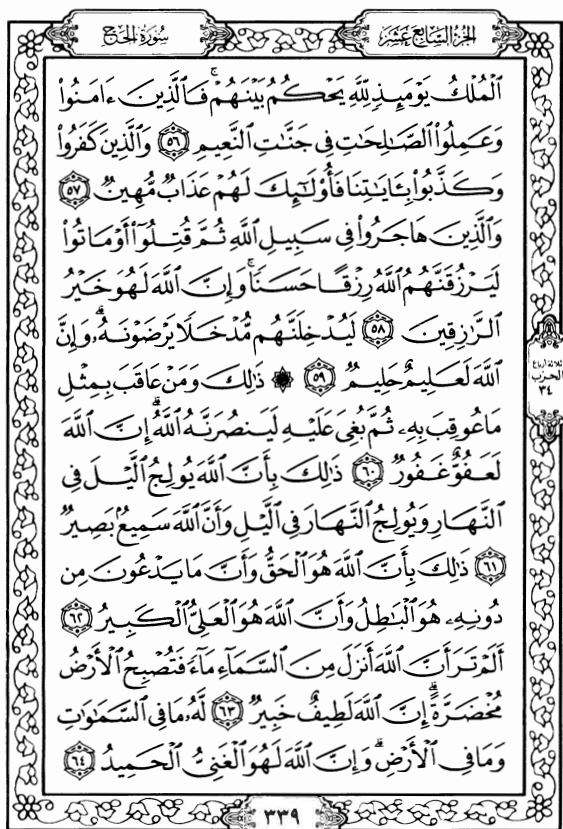 الجزء السابع عشر
سورة الحج
ٱلۡمُلۡكُ يَوۡمَئِذٖ لِّلَّهِ يَحۡكُمُ بَيۡنَهُمۡۚ فَٱلَّذِينَ ءَامَنُواْ
وَعَمِلُواْ ٱلصَّٰلِحَٰتِ فِي جَنَّٰتِ ٱلنَّعِيمِ ٥٦ وَٱلَّذِينَ كَفَرُواْ
وَكَذَّبُواْ بِـَٔايَٰتِنَا فَأُوْلَٰٓئِكَ لَهُمۡ عَذَابٞ مُّهِينٞ ٥٧
وَٱلَّذِينَ هَاجَرُواْ فِي سَبِيلِ ٱللَّهِ ثُمَّ قُتِلُوٓاْ أَوۡ مَاتُواْ
لَيَرۡزُقَنَّهُمُ ٱللَّهُ رِزۡقًا حَسَنٗاۚ وَإِنَّ ٱللَّهَ لَهُوَ خَيۡرُ
ٱلرَّٰزِقِينَ ٥٨ لَيُدۡخِلَنَّهُم مُّدۡخَلٗا يَرۡضَوۡنَهُۥۚ وَإِنَّ
ٱللَّهَ لَعَلِيمٌ حَلِيمٞ ٥٩ ۞ ذَٰلِكَۖ وَمَنۡ عَاقَبَ بِمِثۡلِ
مَا عُوقِبَ بِهِۦ ثُمَّ بُغِيَ عَلَيۡهِ لَيَنصُرَنَّهُ ٱللَّهُۚ إِنَّ ٱللَّهَ
لَعَفُوٌّ غَفُورٞ ٦٠ ذَٰلِكَ بِأَنَّ ٱللَّهَ يُولِجُ ٱلَّيۡلَ فِي
ٱلنَّهَارِ وَيُولِجُ ٱلنَّهَارَ فِي ٱلَّيۡلِ وَأَنَّ ٱللَّهَ سَمِيعُۢ بَصِيرٞ
٦١ ذَٰلِكَ بِأَنَّ ٱللَّهَ هُوَ ٱلۡحَقُّ وَأَنَّ مَا يَدۡعُونَ مِن
دُونِهِۦ هُوَ ٱلۡبَٰطِلُ وَأَنَّ ٱللَّهَ هُوَ ٱلۡعَلِيُّ ٱلۡكَبِيرُ ٦٢
أَلَمۡ تَرَ أَنَّ ٱللَّهَ أَنزَلَ مِنَ ٱلسَّمَآءِ مَآءٗ فَتُصۡبِحُ ٱلۡأَرۡضُ
مُخۡضَرَّةًۚ إِنَّ ٱللَّهَ لَطِيفٌ خَبِيرٞ ٦٣ لَّهُۥ مَا فِي ٱلسَّمَٰوَٰتِ
وَمَا فِي ٱلۡأَرۡضِۚ وَإِنَّ ٱللَّهَ لَهُوَ ٱلۡغَنِيُّ ٱلۡحَمِيدُ ٦٤
ثلاثة أرباع
الحزب
٣٤
٣٣٩